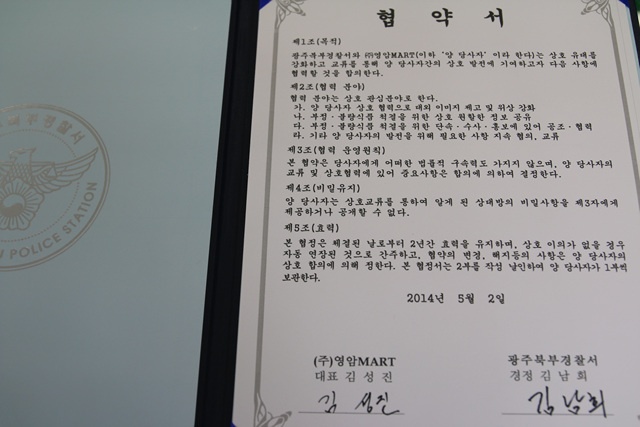 북부경찰서
POLICE STATION
협 약 서
제1조(목적)
광주북부경찰서와 ㈜영암MART(이하 '양 당사자' 이라 한다)는 상호 유대를
강화하고 교류를 통해 양 당사자간의 상호 발전에 기여하고자 다음 사항에
협력할 것을 합의한다.
제2조(협력 분야)
협력 분야는 상호 관심분야로 한다.
가. 양 당사자 상호 협력으로 대외 이미지 제고 및 위상 강화
나. 부정·불량식품 척결을 위한 상호 원활한 정보 공유
다. 부정·불량식품 척결을 위한 단속·수사·홍보에 있어 공조·협력
라. 기타 양 당사자의 발전을 위해 필요한 사항 지속 협의, 교류
제3조(협력 운영원칙)
본 협약은 당사자에게 어떠한 법률적 구속력도 가지지 않으며, 양 당사자의
교류 및 상호협력에 있어 중요사항은 합의에 의하여 결정한다.
제4조(비밀유지)
양 당사자는 상호교류를 통하여 알게 된 상대방의 비밀사항을 제3자에게
제공하거나 공개할 수 없다.
제5조(효력)
본 협정은 체결된 날로부터 2년간 효력을 유지하며, 상호 이의가 없을 경우
자동 연장된 것으로 간주하고, 협약의 변경, 해지등의 사항은 양 당사자의
상호 합의에 의해 정한다. 본 협정서는 2부를 작성 날인하여 양 당사자가 1부씩
보관한다.
2014년 5월 2일
(주)영암MART
대표 김성진
김 성진
광주북부경찰서
경정 김남희
김남희